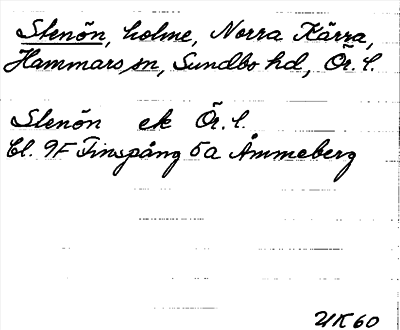 Stenön, holme, Norra Kärra,
Hammars sn, Sundbo hd, Ör. l.
Stenön ek Ör. l.
Bl. 9F Finspång 5a Åmmeberg
UK60